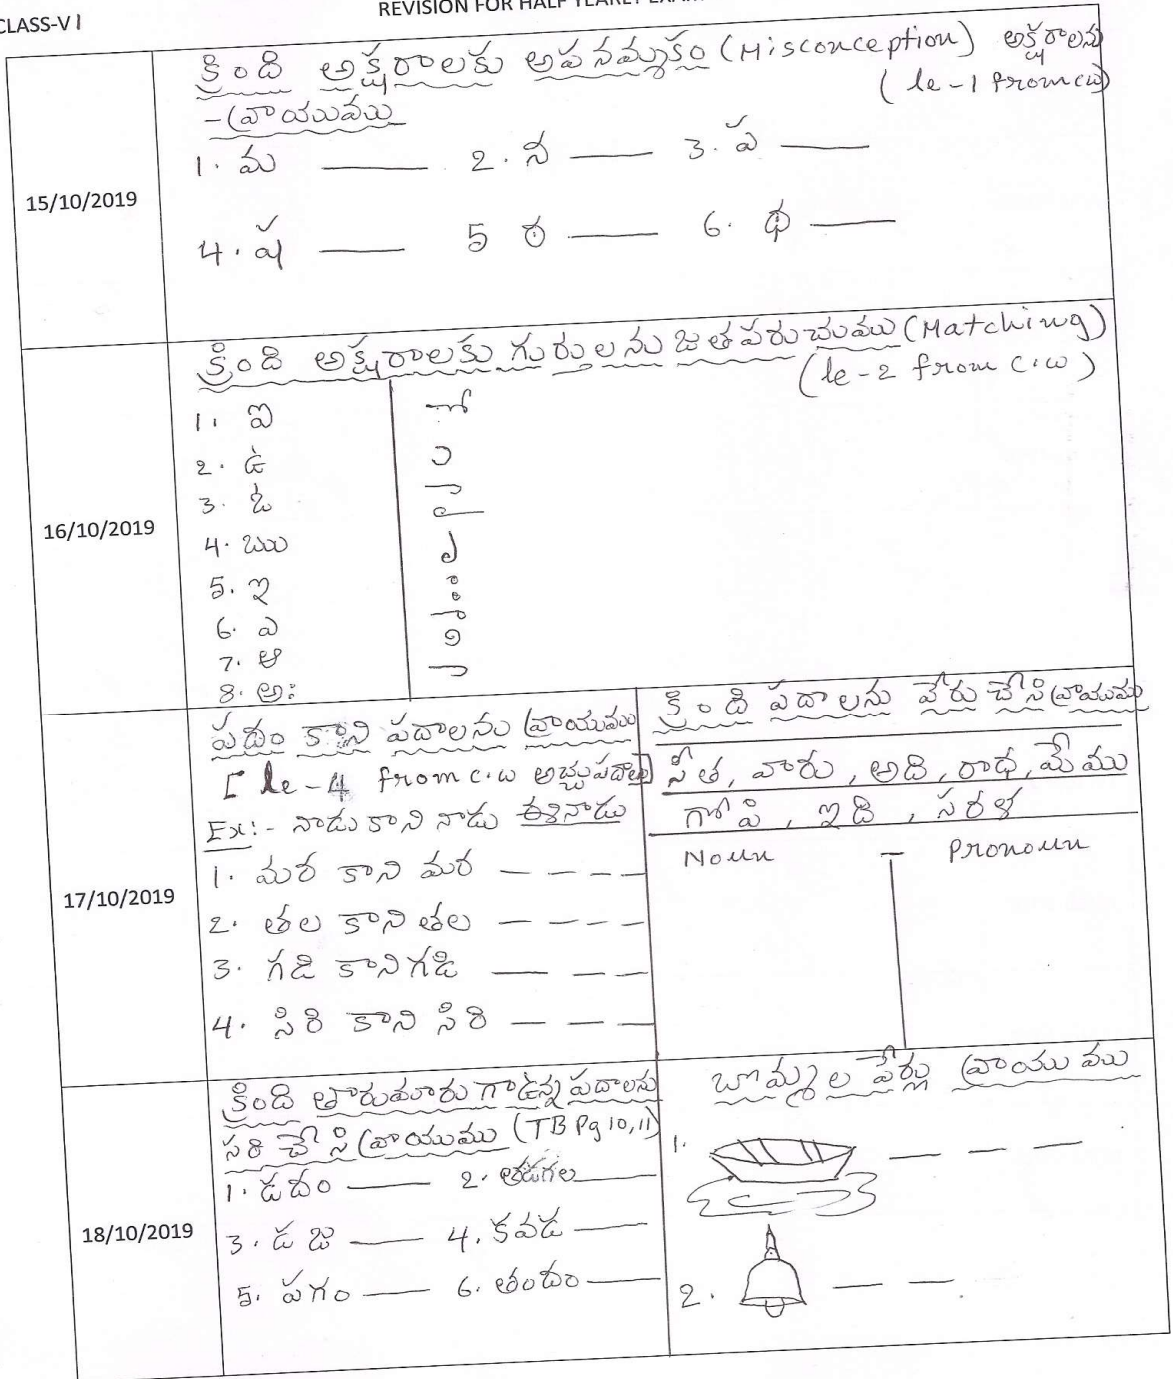 CLASS-VI
REVISION FOR HALF YEARLY
15/10/2019
క్రింది అక్షరాలకు అపనమ్మకం (Misconception) అక్షరాలను
(le-1 from cw)
- వ్రాయుము
1. మ ——— 2. న ——— 3. ప ———
4. ష ——— 5 ఠ ——— 6. థ ———
16/10/2019
క్రింది అక్షరాలకు గుర్తులను జతపరుచుము (Matching)
(le-2 from c.w)
1. ఐ
2. ఉ
3. ఓ
4. ఋ
5. ఇ
6. ఎ
7. ఆ
8. అః
17/10/2019
పదం కాని పదాలను వ్రాయుము
[le-4 from c.w అచ్చుపదాలు]
Ex:- నాడు కాని నాడు ఈనాడు
1. మర కాని మర ————
2. తల కాని తల ————
3. గడి కాని గడి ———
4. సిరి కాని సిరి ———
క్రింది పదాలను వేరు చేసి వ్రాయుము
సీత, వారు, అది, రాధ, మేము
గోపి, ఇది, సరళ
Noun – Pronoun
18/10/2019
క్రింది తారుమారు గాఉన్న పదాలను
సరి చేసి వ్రాయుము (TB Pg 10,11)
1. డదం ——— 2. తడగల ———
3. డజ ——— 4. కవడ ———
5. పగం ——— 6. తందం ———
బొమ్మల పేర్లు వ్రాయుము
1. ———
2. ——